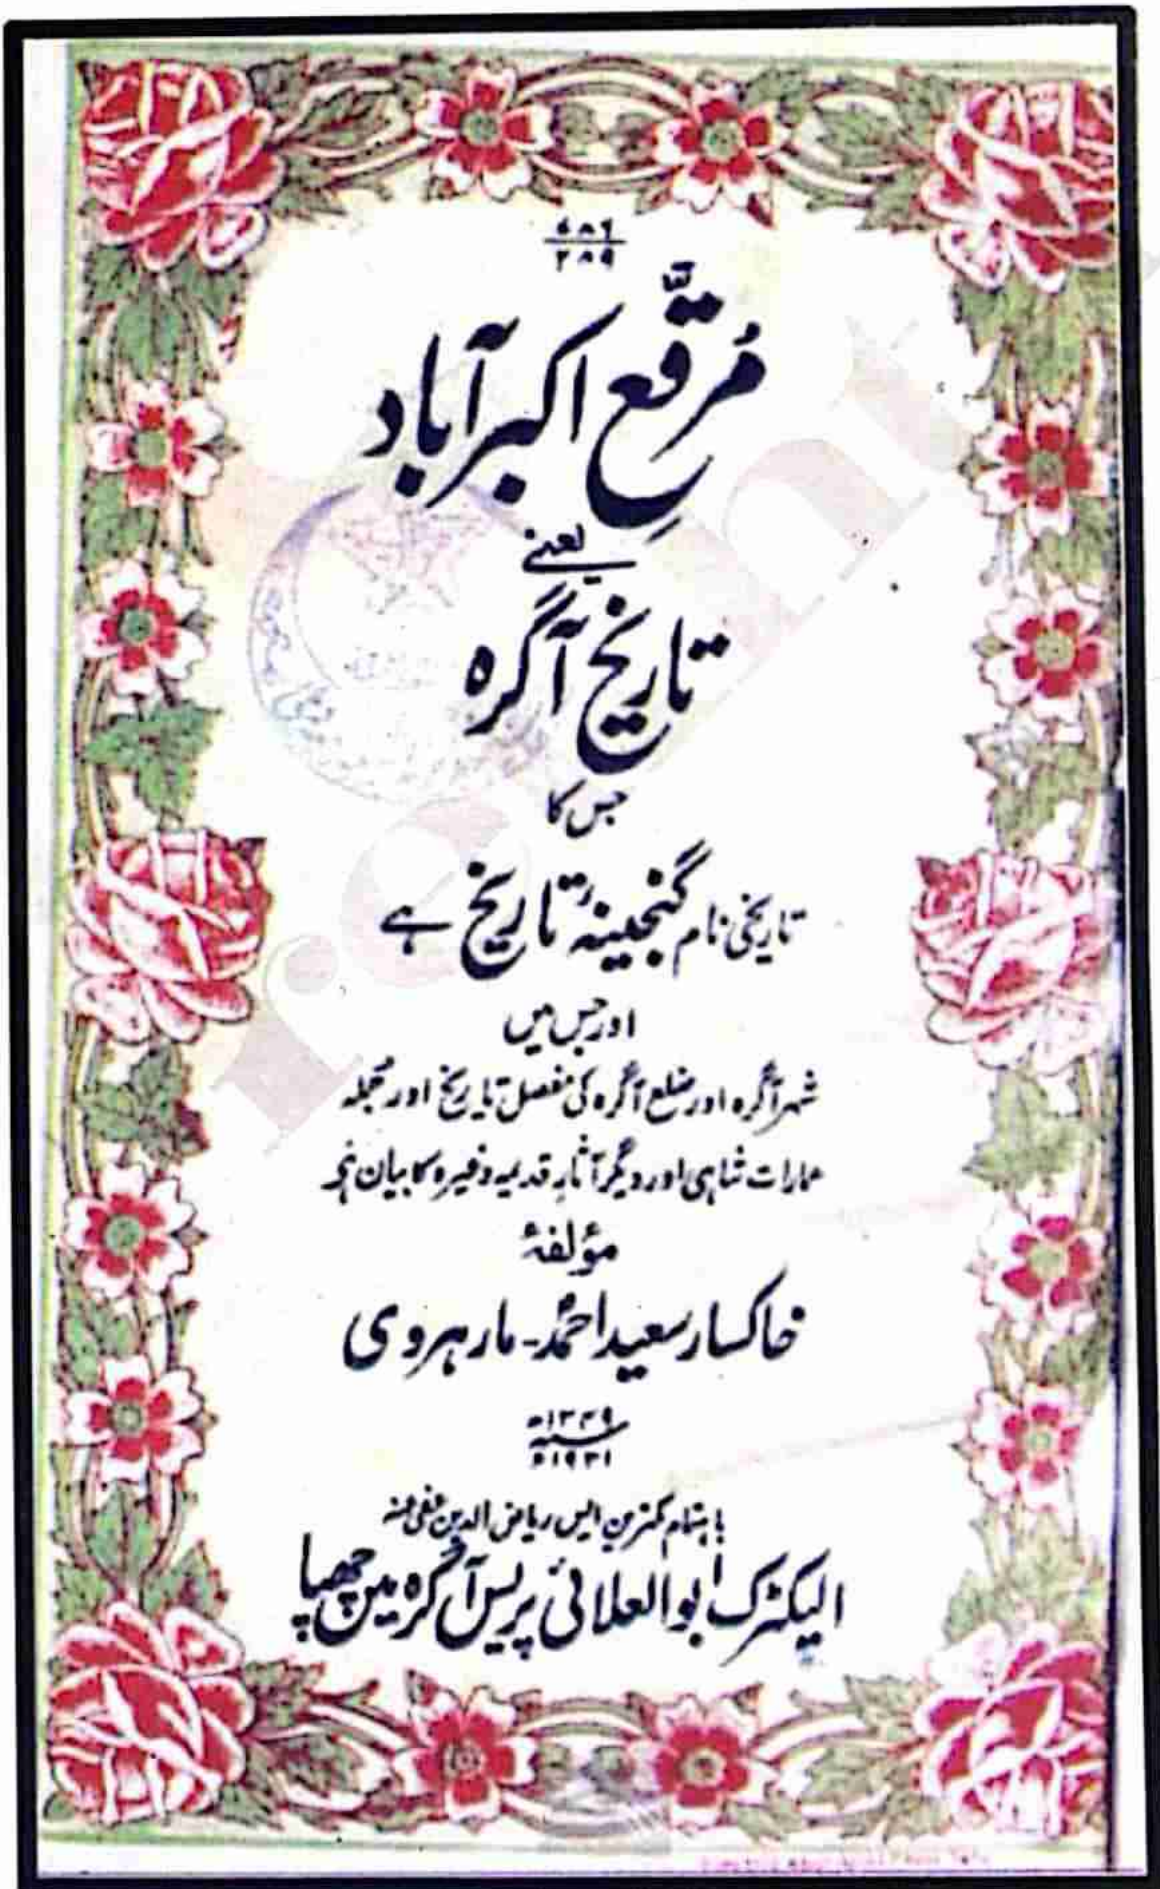 ۷۸۶
مُرقَّع اکبرآباد
یعنے
تاریخ آگرہ
جس کا
تاریخی نام گنجینۂ تاریخ ہے
اور جس میں
شہر آگرہ اور ضلع آگرہ کی مفصل تاریخ اور جملہ
عمارات شاہی اور دیگر آثار قدیمہ وغیرہ کا بیان ہے
مؤلفۂ
خاکسار سعید احمد۔ مارہروی
۱۳۴۹ھ
سنہ
۱۹۳۱ء
باہتمام کمترین ایس ریاض الدین عفی عنہ
الیکٹرک ابوالعلائی پریس آگرہ میں چھپا